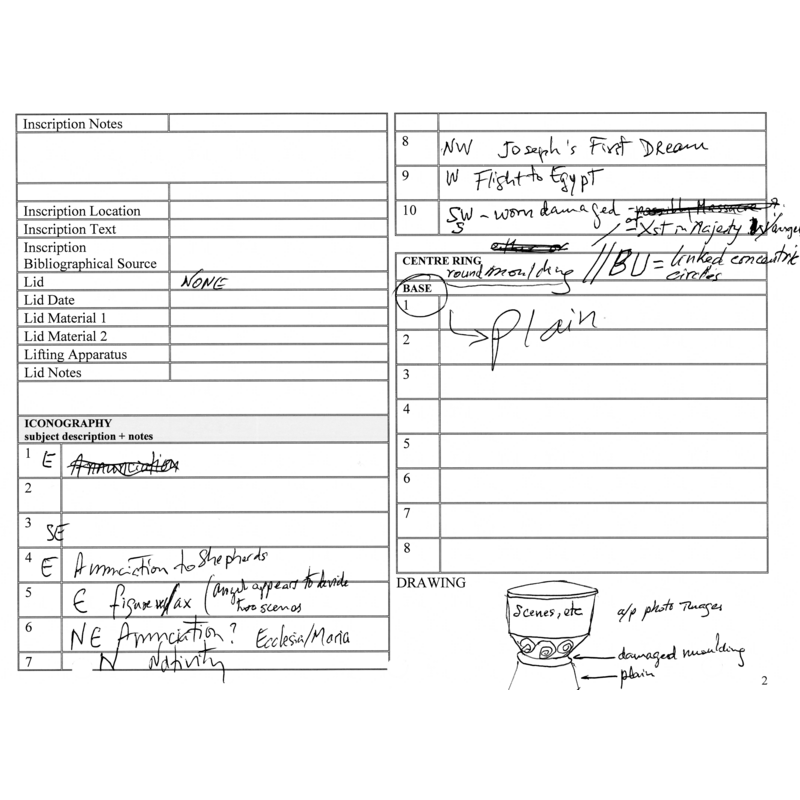 Inscription Notes
Inscription Location
Inscription Text
Inscription
Bibliographical Source
Lid NONE
Lid Date
Lid Material 1
Lid Material 2
Lifting Apparatus
Lid Notes
ICONOGRAPHY
subject description + notes
1 E Annunciation
2
3 SE
4 E Annunciation to Shepherds
5 E figure w/ax (angel appears to divide
two scenes
6 NE Annunciation? Ecclesia/Maria
7 N Nativity
8 NW Joseph's First Dream
9 W Flight to Egypt
10 SW - worn damaged - possibly Massacre
S Xst in Majesty
CENTRE RING
round moulding // BU = linked concentric
circles
BASE
1
2 plain
3
4
5
6
7
8
DRAWING
Scenes, etc
a/p photo images
damaged moulding
plain
2